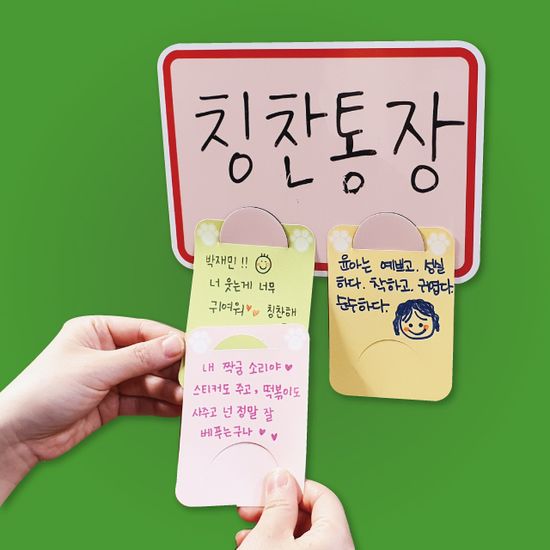 칭찬통장
박재민!!
너 웃는게 너무
귀여워♥♥ 칭찬해
내 짝궁 소리야♥
스티커도 주고, 떡볶이도
사주고 넌 정말 잘
베푸는구나 ♥♥
윤아는 예쁘고. 성실
하다. 착하고. 귀엽다.
순수하다.